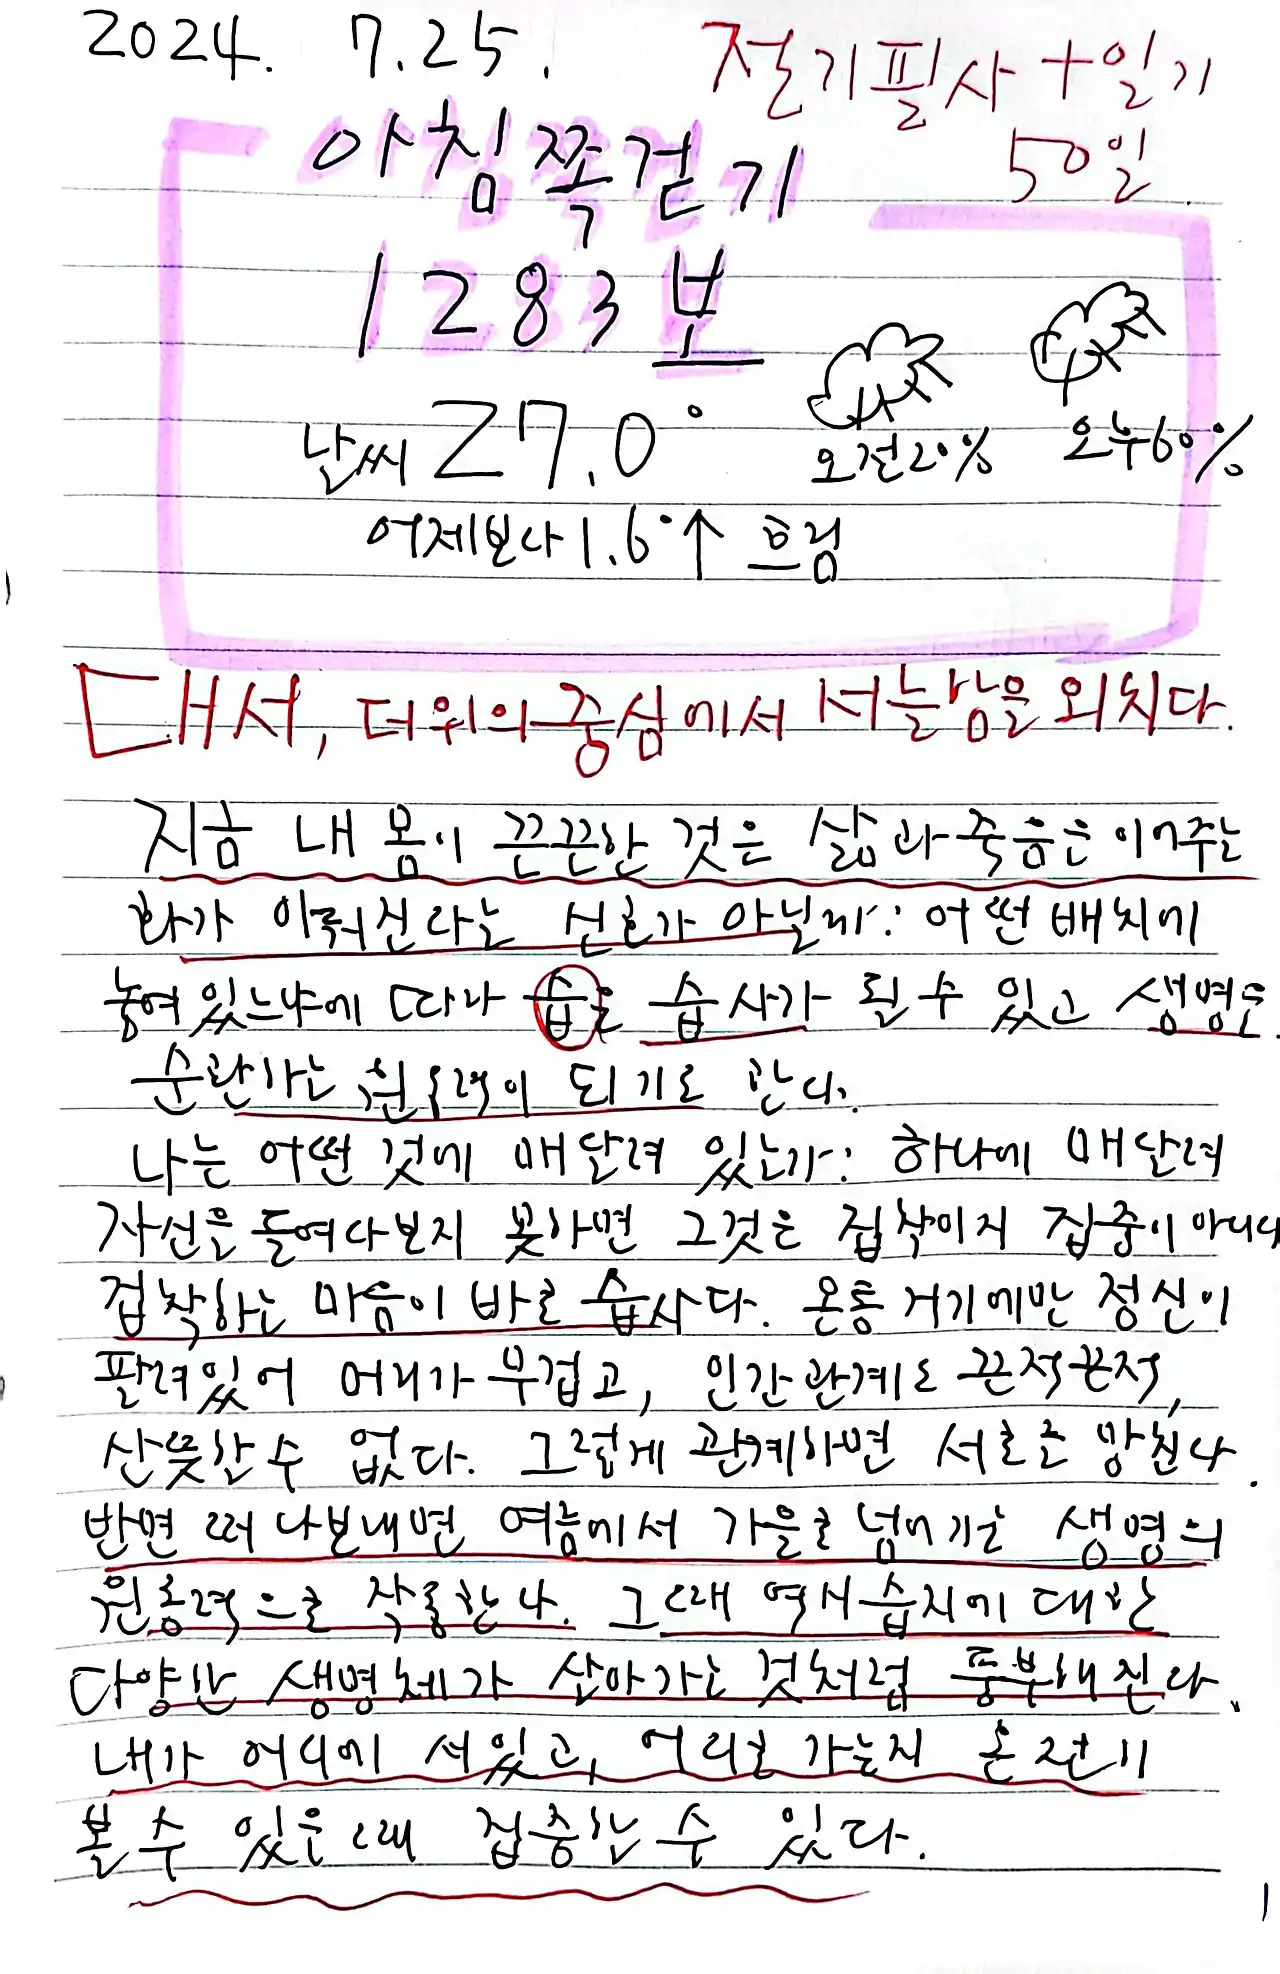 2024. 7.25.
절기필사+일기
50일
아침쪽걷기
1283보
날씨 27.0°
오전20%
오후60%
어제보다 1.6°↑ 흐림
대서, 더위의 중심에서 서늘함을 외치다.
지금 내 몸이 끈끈한 것은 삶과 죽음은 이어주는
화가 이뤄진다는 신호가 아닐까: 어떤 배치에
놓여있느냐에 따라 습은 습사가 될 수 있고 생명은
순환하는 원동력이 되기도 한다.
나는 어떤 것에 매달려 있는가: 하나에 매달려
자신을 들여다보지 못하면 그것은 집착이지 집중이 아니다
집착하는 마음이 바로 습사다. 온통 거기에만 정신이
팔려있어 머리가 무겁고, 인간관계도 끈적끈적,
산뜻할 수 없다. 그렇게 관계하면 서로를 망친다.
반면 떠나보내면 여름에서 가을로 넘어가는 생명의
원동력으로 작용한다. 그때 역시 습지에 대한
다양한 생명체가 살아가는 것처럼 풍부해진다.
내가 어디에 서있고, 어디로 가는지 온전히
볼 수 있을 때 집중할 수 있다.